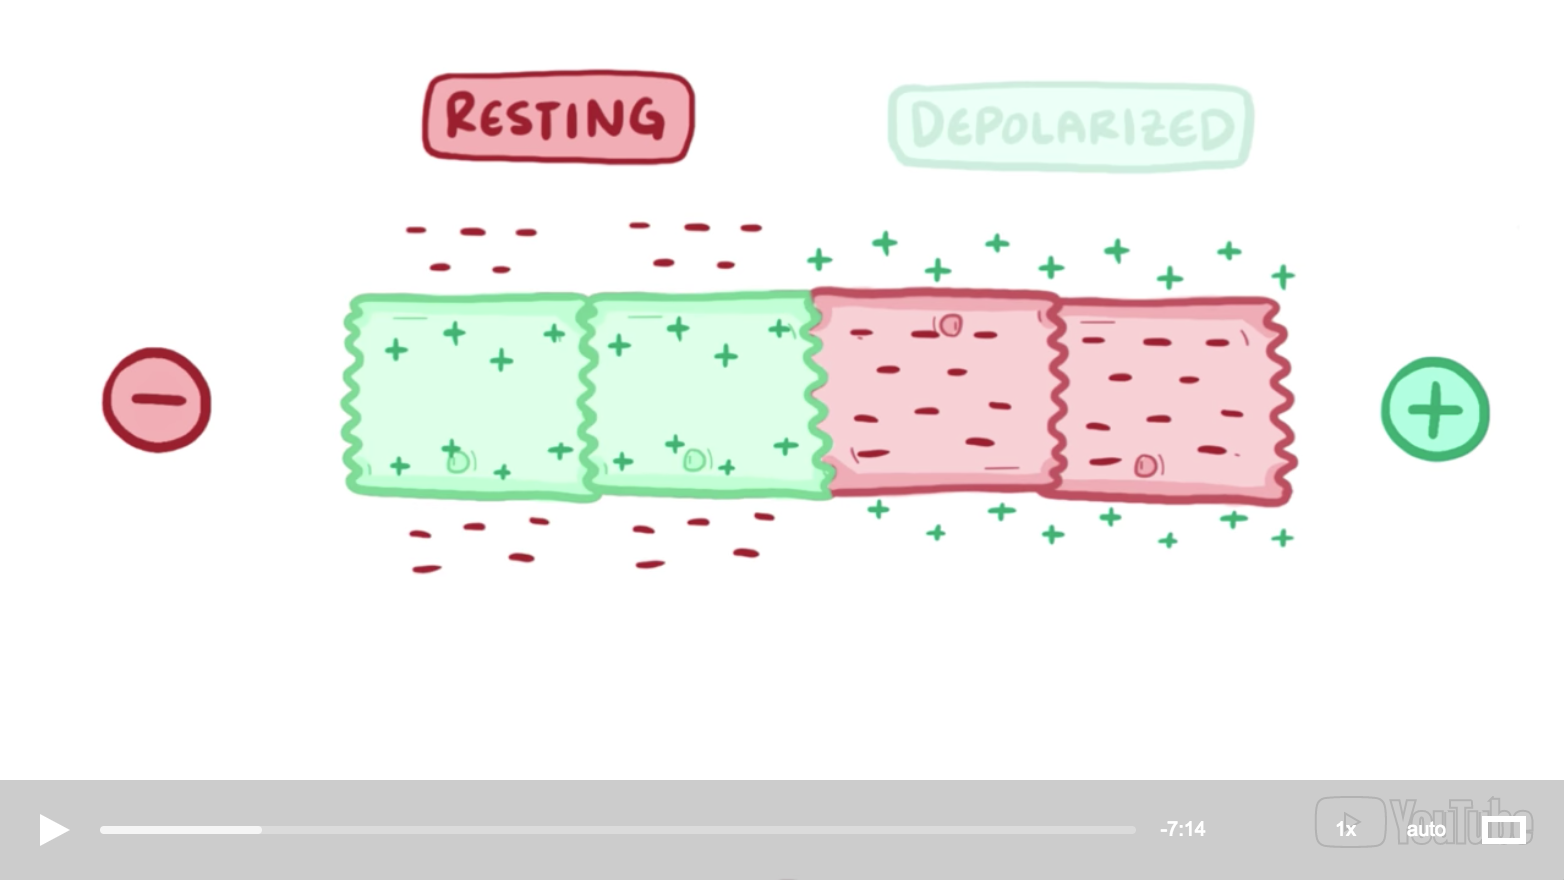 RESTING
DEPOLARIZED
-7:14
1x
auto
YouTube